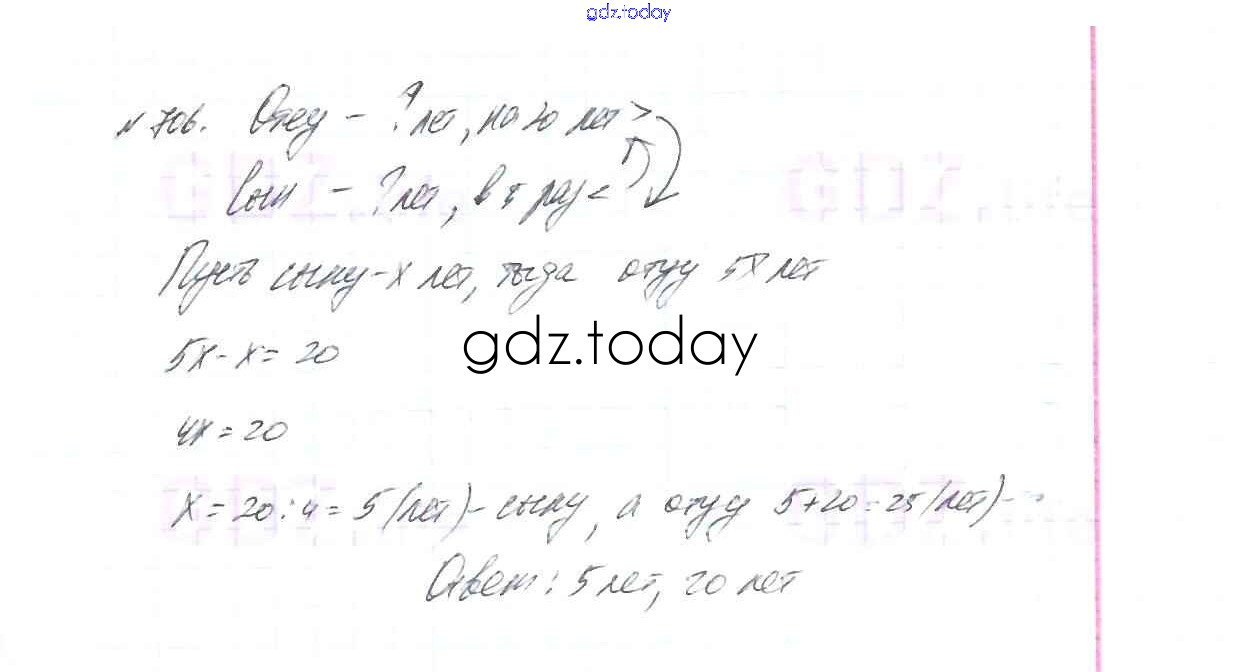 gdz.today
№ 706. Отец - ? лет, на 20 лет >
Сын - ? лет, в 5 раз <
Пусть сыну - х лет, тогда отцу 5х лет
5х - х = 20
gdz.today
4х = 20
х = 20 : 4 = 5 (лет) - сыну, а отцу 5+20=25 (лет) -
Ответ: 5 лет, 20 лет